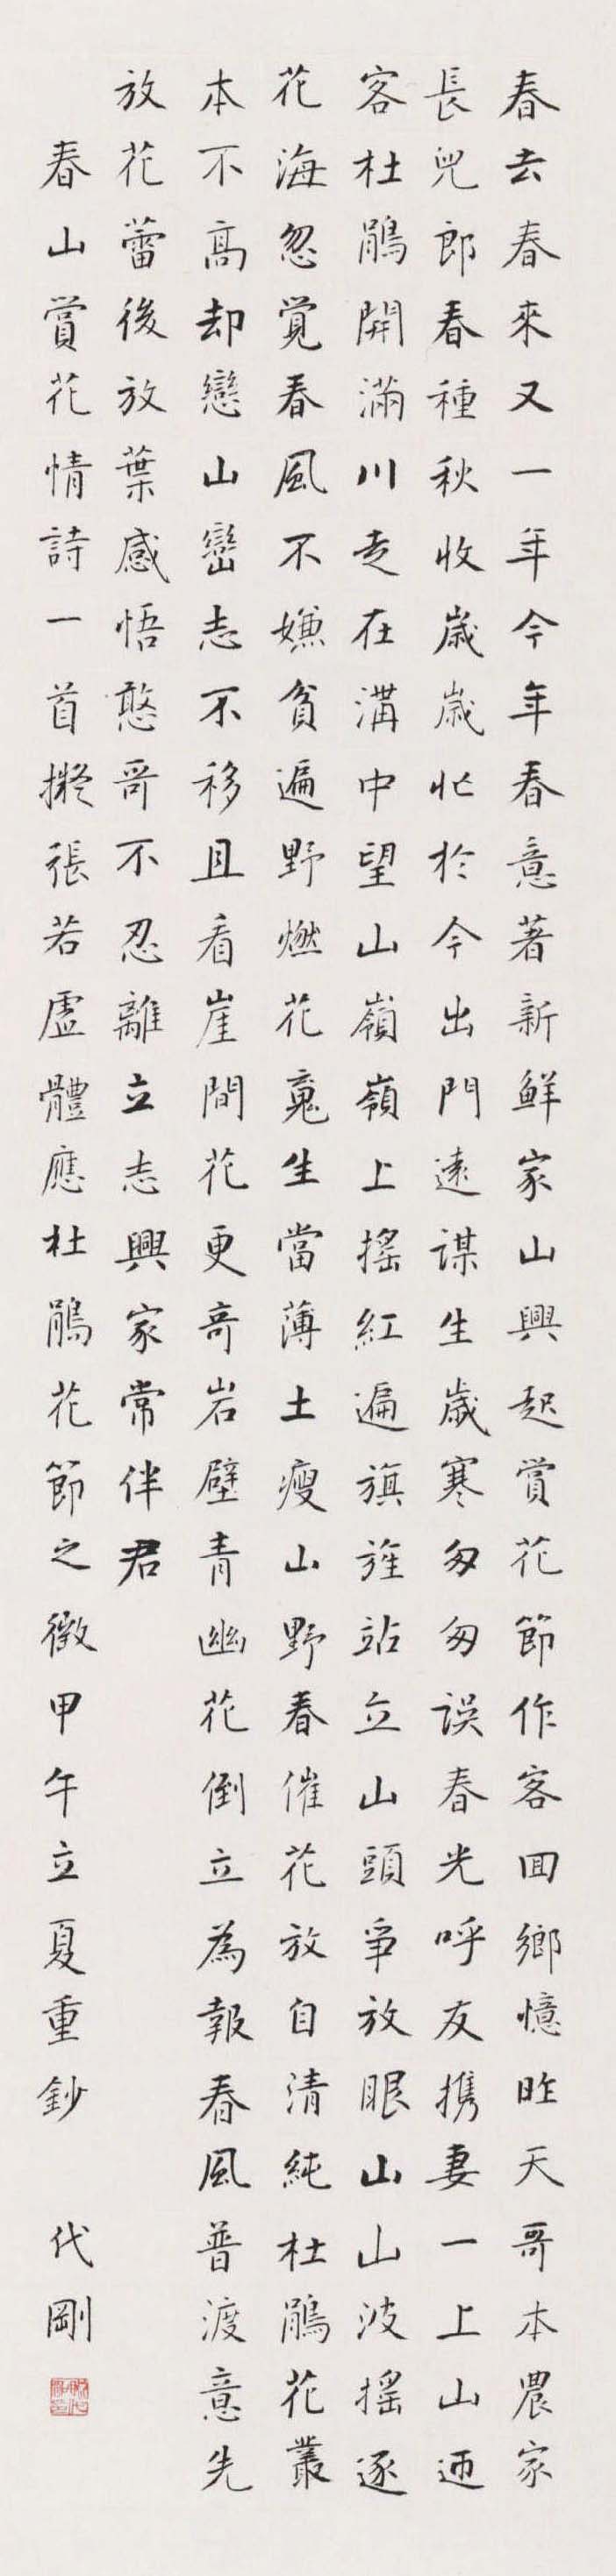 春去春來又一年今年春意著新鮮家山興起賞花節作客回鄉憶昨天哥本農家
長兒郎春種秋收歲歲忙於今出門遠謀生歲寒匆匆誤春光呼友携妻一上山迎
客杜鵑開滿川走在溝中望山嶺嶺上搖紅遍旗旌站立山頭爭放眼山山波搖逐
花海忽覺春風不嫌貧遍野燃花寬生當薄土瘦山野春催花放自清純杜鵑花叢
本不高却戀山巒志不移且看崖間花更奇岩壁青幽花倒立為報春風普渡意先
放花蕾後放葉感悟憨哥不忍離立志興家常伴君
春山賞花情詩一首擬張若虛體應杜鵑花節之徵甲午立夏重鈔 代剛